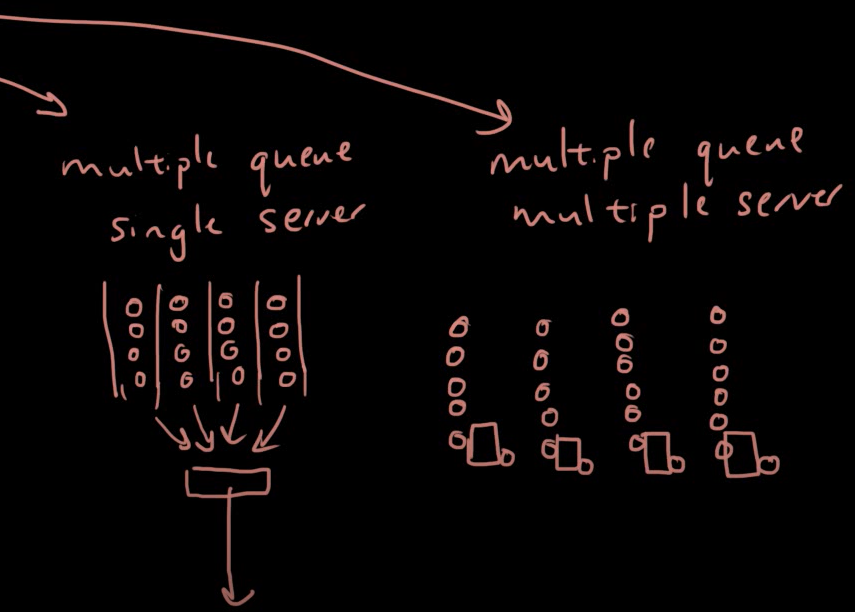 multiple queue
single server
multiple queue
multiple server